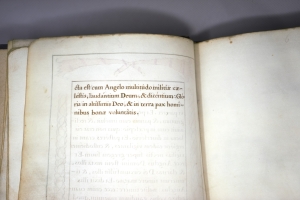 cta est cum Angelo multitudo militiæ cæ-
lestis, laudantium Deum, & dicentium: Glo-
ria in altissimis Deo, & in terra pax homi-
nibus bonæ voluntatis.